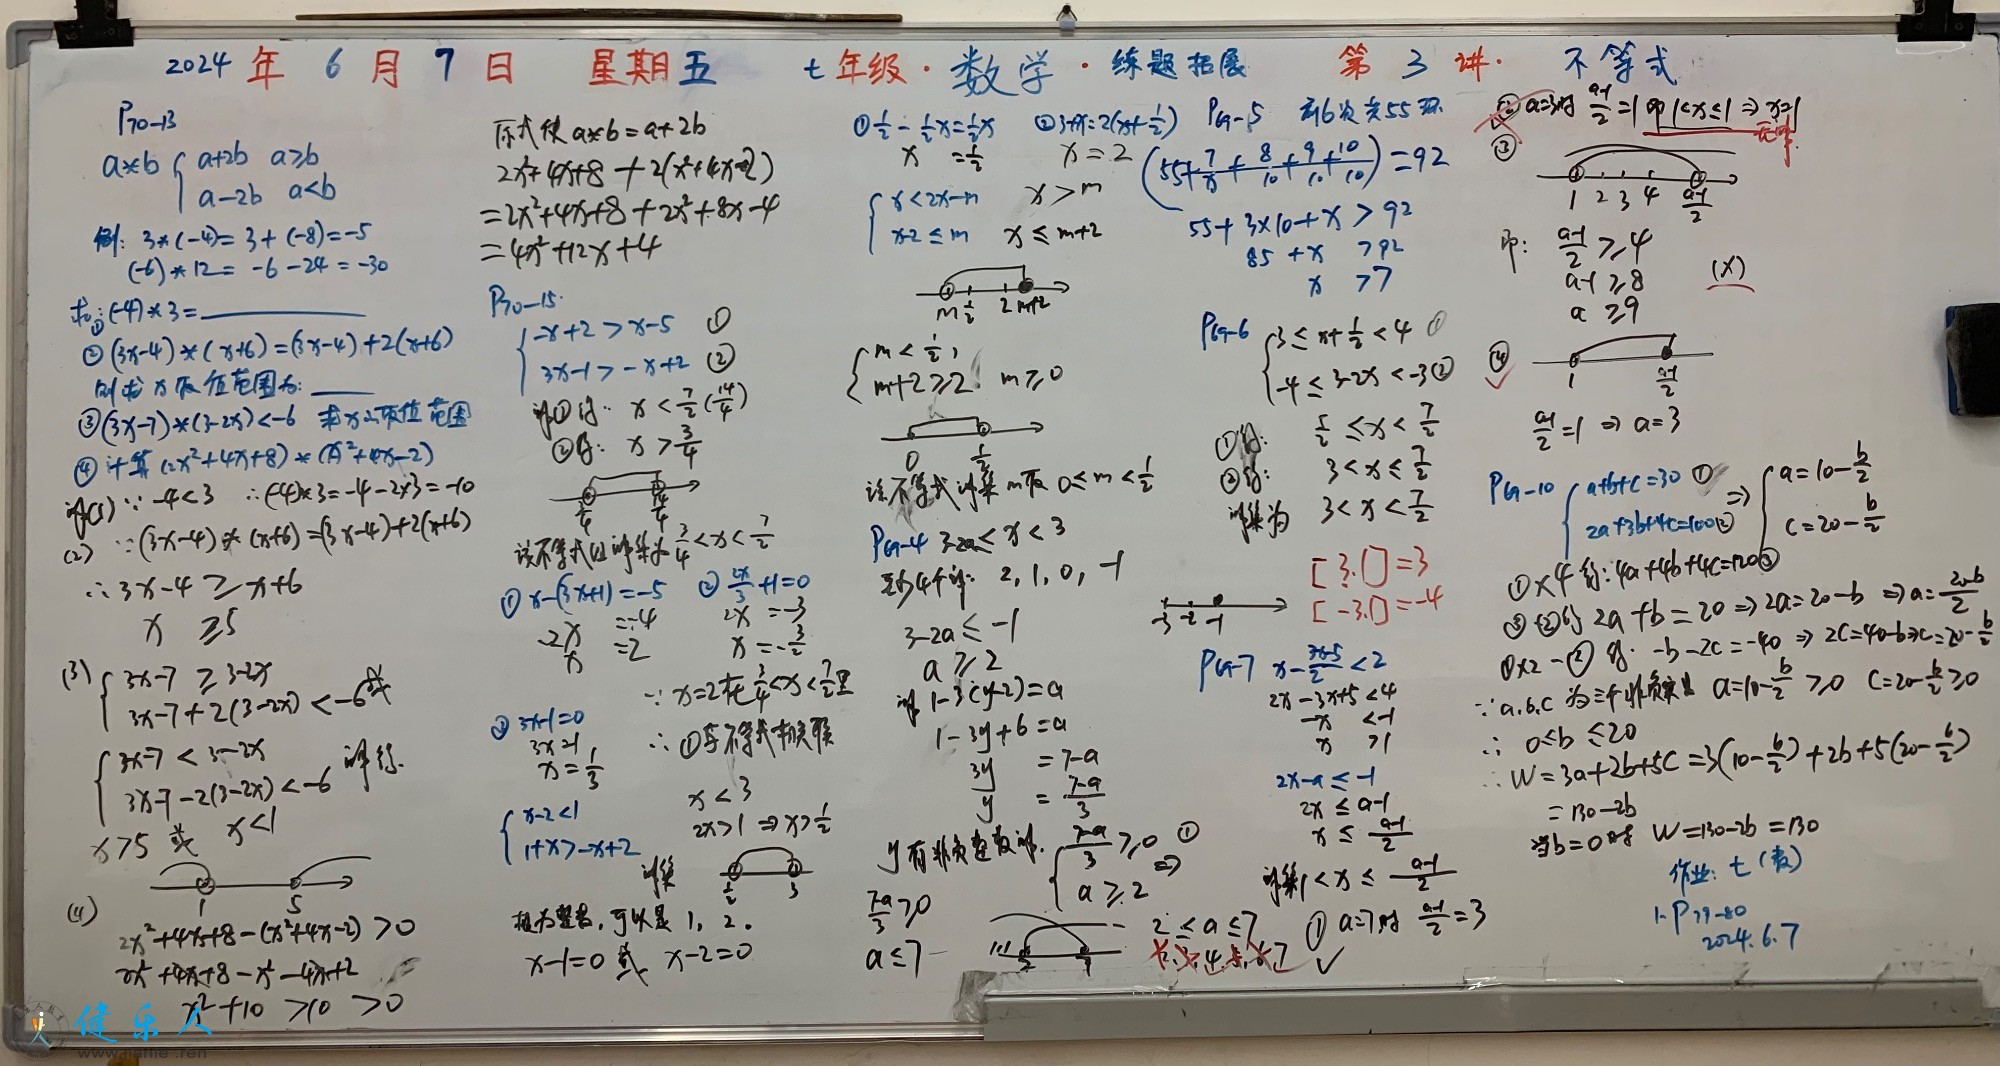 2024 年 6 月 7 日 星期五 七年级·数学·练题拓展 第 3 讲· 不等式
P70-13
a*b { a+2b a≥b
a-2b a<b
例: 3*(-4)= 3+(-8)=-5
(-6)*12= -6-24=-30
求: ① (-4)*3=______
② (3x-4)*(x+6)=(3x-4)+2(x+6)
则求x取值范围为:____
③ (3x-7)*(3-2x)<-6 求x的取值范围
④ 计算 (2x²+4x+8)*(x²+4x-2)
解(1) ∵ -4<3 ∴(-4)*3=-4-2×3=-10
(2) ∵(3x-4)*(x+6)=(3x-4)+2(x+6)
∴ 3x-4 ≥ x+6
x ≥5
(3) { 3x-7 ≥ 3-2x
3x-7+2(3-2x)<-6 或
{ 3x-7 < 3-2x
3x-7-2(3-2x)<-6 解得
x>5 或 x<1
1 5
(4)
2x²+4x+8-(x²+4x-2)>0
2x²+4x+8-x²-4x+2
x²+10 >10 >0
原式使 a*b=a+2b
2x²+4x+8+2(x²+4x-2)
=2x²+4x+8+2x²+8x-4
=4x²+12x+4
P70-15
{ -x+2>x-5 ①
3x-1>-x+2 ②
解①得: x<7/2 (14/4)
②得: x>3/4
3/4 14/4
该不等式组解集为 3/4<x<7/2
① x-(3x+1)=-5 ② 2x/3+1=0
-2x =-4 2x =-3
x =2 x=-3/2
∵ x=2在 3/4<x<7/2里
③ 3x-1=0
3x=1
x=1/3
∴ ①与不等式有关联
{ x-2<1
1+x>-x+2
x<3
2x>1 ⇒x>1/2
解集 1/2 3
根为整数,可以是 1, 2.
x-1=0 或 x-2=0
① 1/2-1/2x=1/2x ② 3+x=2(x+1/2)
x =1/2 x=2
{ x<2x-m x>m
x-2≤m x≤m+2
m 1/2 2 m+2
{ m<1/2,
m+2≥2 m≥0
0 1/2
该不等式解集 m取 0≤m<1/2
P69-4 3-2a≤x<3
至少4个解: 2, 1, 0, -1
3-2a≤-1
a≥2
解 1-3(y-2)=a
1-3y+6=a
3y =7-a
y =7-a/3
y有非负整数解. { 7-a/3≥0 ①
a≥2 ⇒
7-a/3≥0
a≤7
2 7
2≤a≤7
2.3.4.5.6.7
P69-5 前6次共55环
(55+7/x+8/10+9/10+10/10)=92
55+3×10+x>92
85+x >92
x >7
P69-6 { 3≤x+1/2<4 ①
-4≤3-2x<-3 ②
①得: 5/2≤x<7/2
②得: 3<x≤7/2
解集为 3<x<7/2
[3.1]=3
[-3.1]=-4
-3 -2 -1
P69-7 x-3x-5/2<2
2x-3x+5<4
-x <-1
x >1
2x-a≤-1
2x≤a-1
x≤a-1/2
解集1<x≤a-1/2
① a=7时 a-1/2=3 ✓
② a=3时 a-1/2=1 即 1<x≤1 ⇒x=1
无解
③
1 2 3 4 a-1/2
即: a-1/2≥4
a-1≥8 (X)
a ≥9
④ ✓ 1 a-1/2
a-1/2=1 ⇒ a=3
P69-10 { a+b+c=30 ① ⇒ { a=10-b/2
2a+3b+4c=100② c=20-b/2
①×4得: 4a+4b+4c=120③
③-②得 2a+b=20⇒2a=20-b ⇒a=20-b/2
①×2-②得. -b-2c=-40 ⇒ 2c=40-b⇒c=20-b/2
∵a.b.c 为三个非负实数 a=10-b/2≥0 c=20-b/2≥0
∴ 0≤b≤20
∴W=3a+2b+5c=3(10-b/2)+2b+5(20-b/2)
=130-2b
当b=0时 W=130-2b=130
作业: 七(数)
1. P79-80
2024.6.7
健乐人